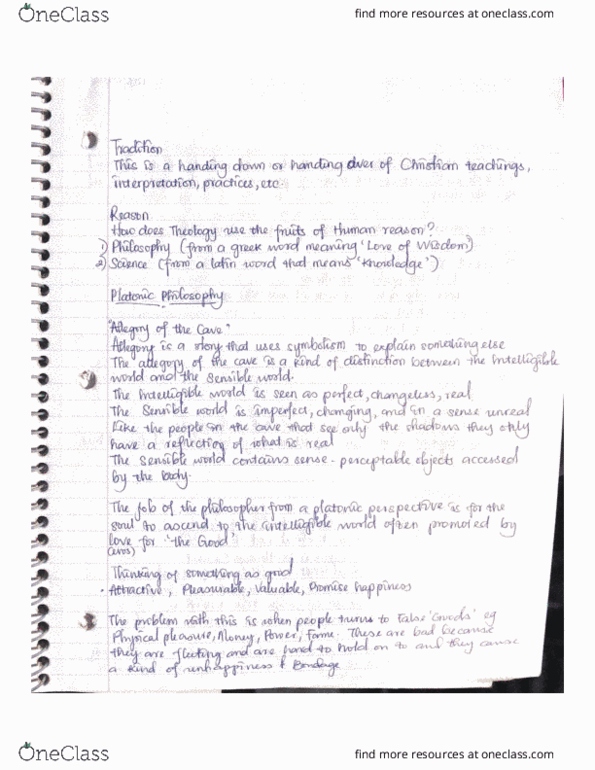 OneClass
find more resources at oneclass.com
Tradition
This is a handing down or handing over of Christian teachings,
interpretation, practices, etc
Reason
How does Theology use the fruits of Human reason?
1) Philosophy (from a greek word meaning 'Love of Wisdom')
2) Science (from a latin word that means 'Knowledge')
Platonic Philosophy
"Allegory of the Cave"
Allegory is a story that uses symbolism to explain something else
The allegory of the cave is a kind of distinction between the Intelligible
world and the Sensible world.
The Intelligible world is seen as perfect, changeless, real
The Sensible world is imperfect, changing, and in a sense unreal
Like the people in the cave that see only the shadows they only
have a reflection of what is real
The Sensible world contains sense-perceptable objects accessed
by the body.
The job of the philosopher from a platonic perspective is for the
soul to ascend to the intelligible world often promoted by
love for 'the Good'
(eros)
Thinking of something as good
• Attractive, Pleasurable, Valuable, Promise happiness
The problem with this is when people turns to False 'Goods' eg
Physical pleasure, Money, Power, Fame. These are bad because
they are fleeting and are hard to hold on to and they cause
a kind of unhappiness & Bondage
OneClass
find more resources at oneclass.com